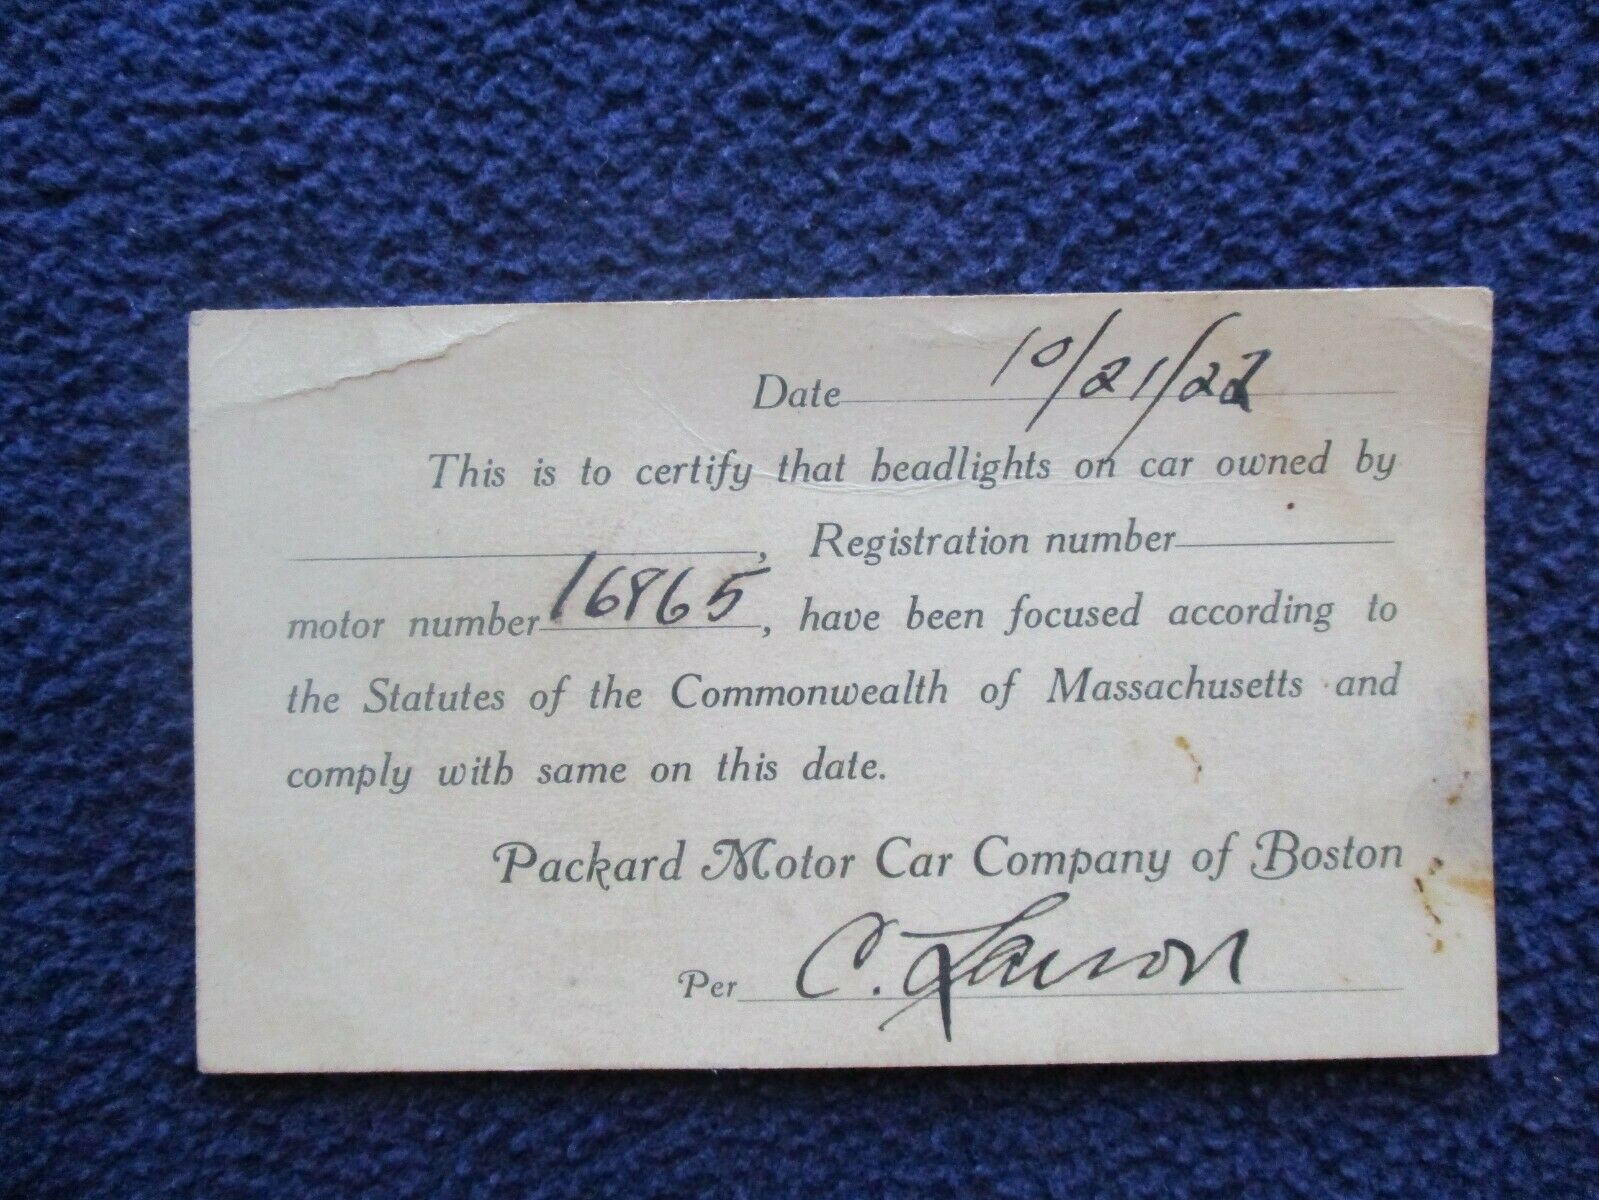 Date 10/21/22
This is to certify that headlights on car owned by
, Registration number
motor number 16865, have been focused according to
the Statutes of the Commonwealth of Massachusetts and
comply with same on this date.
Packard Motor Car Company of Boston
Per C. Larson